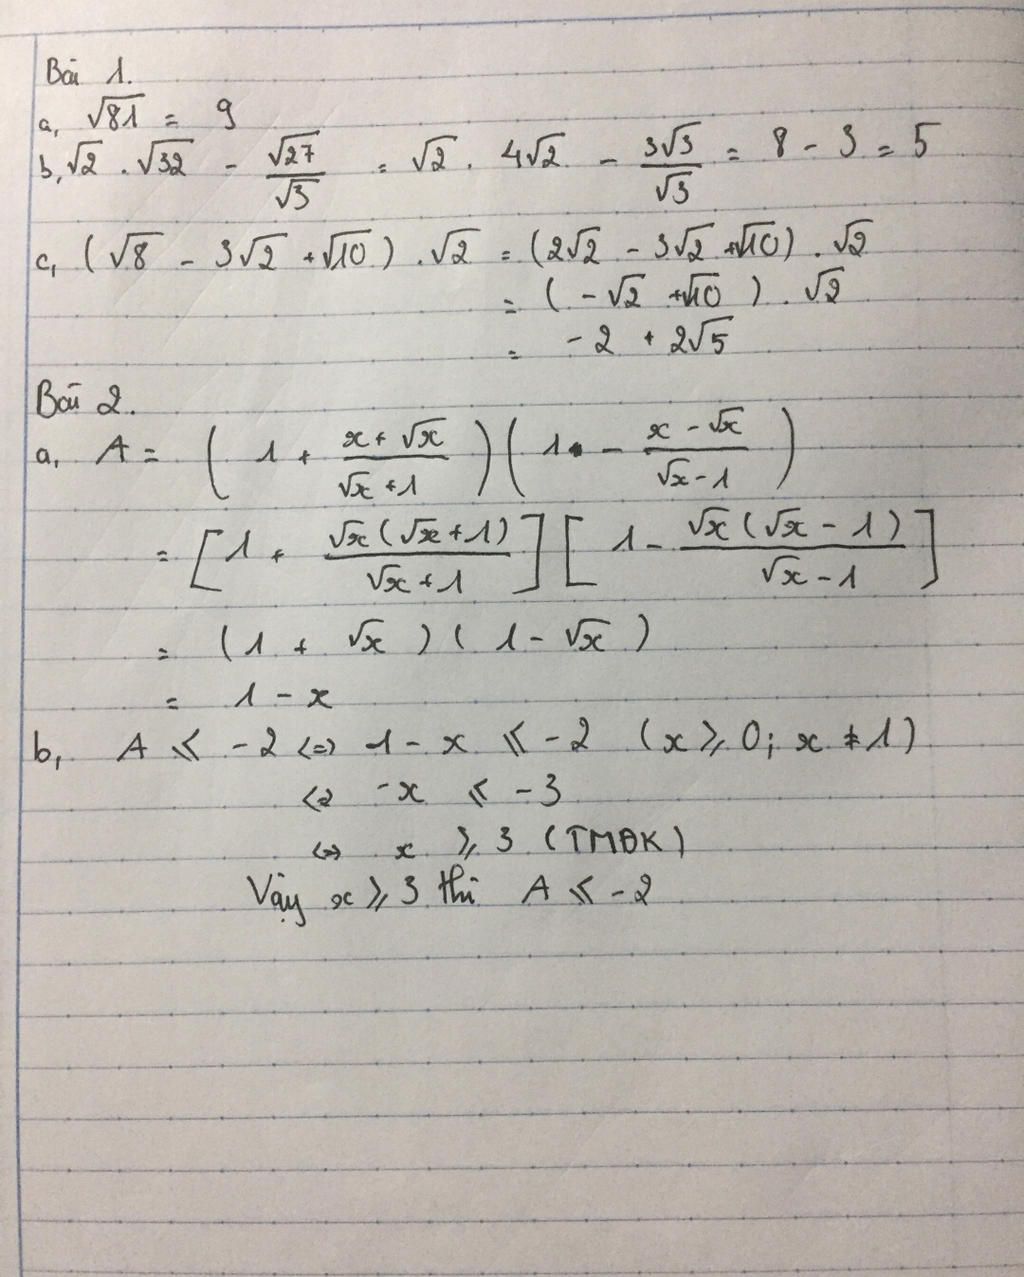 Bài 1.
a, √81 = 9
b, √2 . √32 - √27/√3 = √2 . 4√2 - 3√3/√3 = 8 - 3 = 5
c, (√8 - 3√2 + √10) . √2 = (2√2 - 3√2 + √10) . √2
= (-√2 + √10) . √2
= -2 + 2√5
Bài 2.
a, A = (1 + (x + √x)/(√x + 1)) (1 - (x - √x)/(√x - 1))
= [1 + √x(√x + 1)/(√x + 1)] [1 - √x(√x - 1)/(√x - 1)]
= (1 + √x) (1 - √x)
= 1 - x
b, A ⩽ -2 <=> 1 - x ⩽ -2 (x ⩾ 0; x ≠ 1)
<=> -x ⩽ -3
<=> x ⩾ 3 (TMĐK)
Vậy x ⩾ 3 thì A ⩽ -2